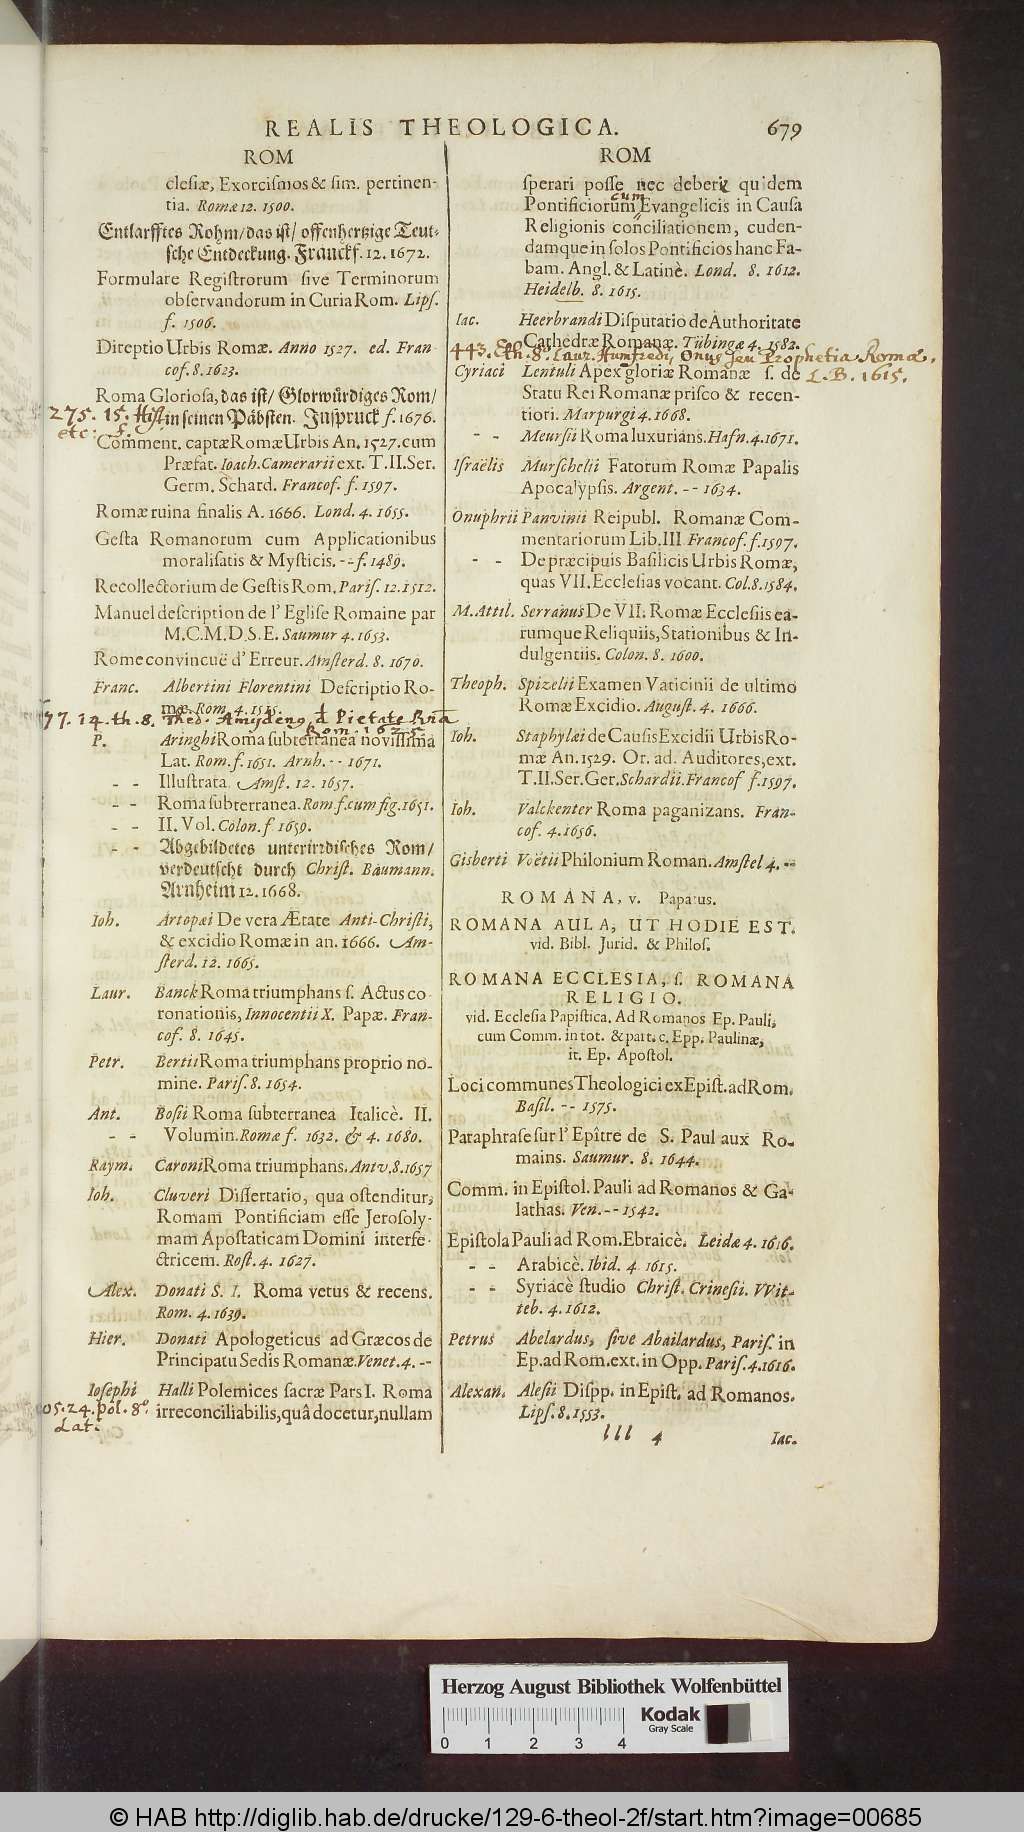 REALIS THEOLOGICA. 679
ROM
clesiæ, Exorcismos & sim. pertinen-
tia. Romæ 12. 1500.
Entlarfftes Rohm/das ist/ offenhertzige Teut-
sche Entdeckung. Franckf. 12. 1672.
Formulare Registrorum sive Terminorum
observandorum in Curia Rom. Lips.
f. 1506.
Direptio Urbis Romæ. Anno 1527. ed. Fran-
cof. 8. 1623.
Roma Gloriosa, das ist/ Glorwürdiges Rom/
275. 15. Hist. in seinen Päbsten. Inspruck f. 1676.
etc: f.
Comment. captæ Romæ Urbis An. 1527. cum
Præfat. Ioach. Camerarii ext. T. II. Ser.
Germ. Schard. Francof. f. 1597.
Romæ ruina finalis A. 1666. Lond. 4. 1655.
Gesta Romanorum cum Applicationibus
moralisatis & Mysticis. - - f. 1489.
Recollectorium de Gestis Rom. Paris. 12. 1512.
Manuel description de l' Eglise Romaine par
M. C. M. D. S. E. Saumur 4. 1653.
Rome convincuë d' Erreur. Amsterd. 8. 1670.
Franc. Albertini Florentini Descriptio Ro-
mæ. Rom. 4. 1515.
77. 14. th. 8. Theo. Amydeno, d Pietate Rña
Rom. 1625
P. Aringhi Roma subterranea novissima
Lat. Rom. f. 1651. Arnh. - - 1671.
- - Illustrata Amst. 12. 1657.
- - Roma subterranea. Rom. f. cum fig. 1651.
- - II. Vol. Colon. f 1659.
- - Abgebildetes unterirrdisches Rom/
verdeutscht durch Christ. Baumann.
Arnheim 12. 1668.
Ioh. Artopæi De vera Ætate Anti-Christi,
& excidio Romæ in an. 1666. Am-
sterd. 12. 1665.
Laur. Banck Roma triumphans s. Actus co-
ronationis, Innocentii X. Papæ. Fran-
cof. 8. 1645.
Petr. Bertii Roma triumphans proprio no-
mine. Paris. 8. 1654.
Ant. Bosii Roma subterranea Italicè. II.
- - Volumin. Romæ f. 1632. & 4. 1680.
Raym. Caroni Roma triumphans. Antv. 8. 1657
Ioh. Cluveri Dissertatio, qua ostenditur,
Romam Pontificiam esse Jerosoly-
mam Apostaticam Domini interfe-
ctricem. Rost. 4. 1627.
Alex. Donati S. I. Roma vetus & recens.
Rom. 4. 1639.
Hier. Donati Apologeticus ad Græcos de
Principatu Sedis Romanæ. Venet. 4. - -
Iosephi Halli Polemices sacræ Pars I. Roma
05. 24. pol. 8º. irreconciliabilis, quâ docetur, nullam
Lat:
ROM
sperari posse nec debere quidem
Pontificiorum cum Evangelicis in Causa
Religionis conciliationem, cuden-
damque in solos Pontificios hanc Fa-
bam. Angl. & Latinè. Lond. 8. 1612.
Heidelb. 8. 1615.
Iac. Heerbrandi Disputatio de Authoritate
Cathedræ Romanæ. Tübingæ 4. 1582.
th. 8º. Laur. Humfredi, Onus seu Prophetia Romæ.
L. B. 1615.
Cyriaci Lentuli Apex gloriæ Romanæ s. de
Statu Rei Romanæ prisco & recen-
tiori. Marpurgi 4. 1668.
- - Meursii Roma luxurians. Hafn. 4. 1671.
Israëlis Murschelii Fatorum Romæ Papalis
Apocalypsis. Argent. - - 1634.
Onuphrii Panvinii Reipubl. Romanæ Com-
mentariorum Lib. III Francof. f. 1597.
- - De præcipuis Basilicis Urbis Romæ,
quas VII. Ecclesias vocant. Col. 8. 1584.
M. Attil. Serranus De VII. Romæ Ecclesiis ea-
rumque Reliquiis, Stationibus & In-
dulgentiis. Colon. 8. 1600.
Theoph. Spizelii Examen Vaticinii de ultimo
Romæ Excidio. August. 4. 1666.
Ioh. Staphylæi de Causis Excidii Urbis Ro-
mæ An. 1529. Or. ad. Auditores, ext.
T. II. Ser. Ger. Schardii. Francof f. 1597.
Ioh. Valckenter Roma paganizans. Fran-
cof. 4. 1656.
Gisberti Voëtii Philonium Roman. Amstel 4. - -
ROMANA, v. Papatus.
ROMANA AULA, UT HODIE EST.
vid. Bibl. Jurid. & Philos.
ROMANA ECCLESIA, s. ROMANA
RELIGIO.
vid. Ecclesia Papistica. Ad Romanos Ep. Pauli,
cum Comm. in tot. & part. c. Epp. Paulinæ,
it. Ep. Apostol.
Loci communes Theologici ex Epist. ad Rom.
Basil. - - 1575.
Paraphrase sur l' Epître de S. Paul aux Ro-
mains. Saumur. 8. 1644.
Comm. in Epistol. Pauli ad Romanos & Ga-
lathas. Ven. - - 1542.
Epistola Pauli ad Rom. Ebraicè. Leidæ 4. 1616.
- - Arabicè. Ibid. 4 1615.
- - Syriacè studio Christ. Crinesii. VVit-
teb. 4. 1612.
Petrus Abelardus, sive Abailardus, Paris. in
Ep. ad Rom. ext. in Opp. Paris. 4. 1616.
Alexan. Alesii Dispp. in Epist. ad Romanos.
Lips. 8. 1553.
lll 4 Iac.
Herzog August Bibliothek Wolfenbüttel
Kodak
Gray Scale
0 1 2 3 4
© HAB http://diglib.hab.de/drucke/129-6-theol-2f/start.htm?image=00685